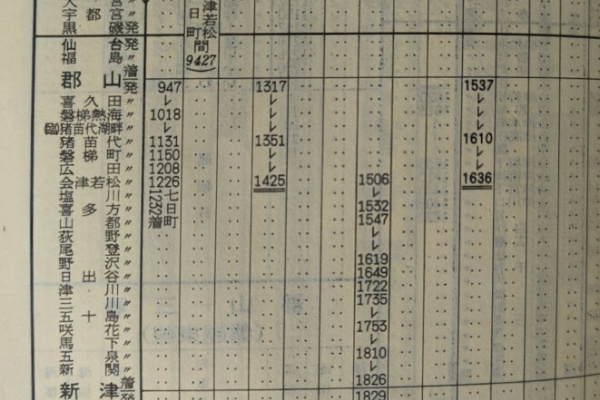 都 宮 〃
黒 磯 発
仙 台 発
福 島 〃
郡 山 着発 947 1317 1537
喜 久 田 〃 レ レ レ
磐 梯 熱 海 〃 1018 レ レ
(臨)猪 苗 代 湖 畔 〃 レ レ レ
猪 苗 代 〃 1131 1351 1610
磐 梯 町 〃 1150 レ レ
広 田 〃 1208 レ レ
会 津 若 松 〃 1226 1425 1506 1636
塩 川 〃 レ
喜 多 方 〃 1532
山 都 〃 1547
荻 野 〃 レ
尾 登 〃 レ
野 沢 〃 1619
日 出 谷 〃 1649
津 川 〃 1722
三 川 〃 1735
五 十 島 〃 レ
咲 花 〃 1753
馬 下 〃 レ
五 泉 〃 1810
新 関 〃 レ
新 津 着 1826
発 1829
津若松
日町間
9427
七日町
1232着